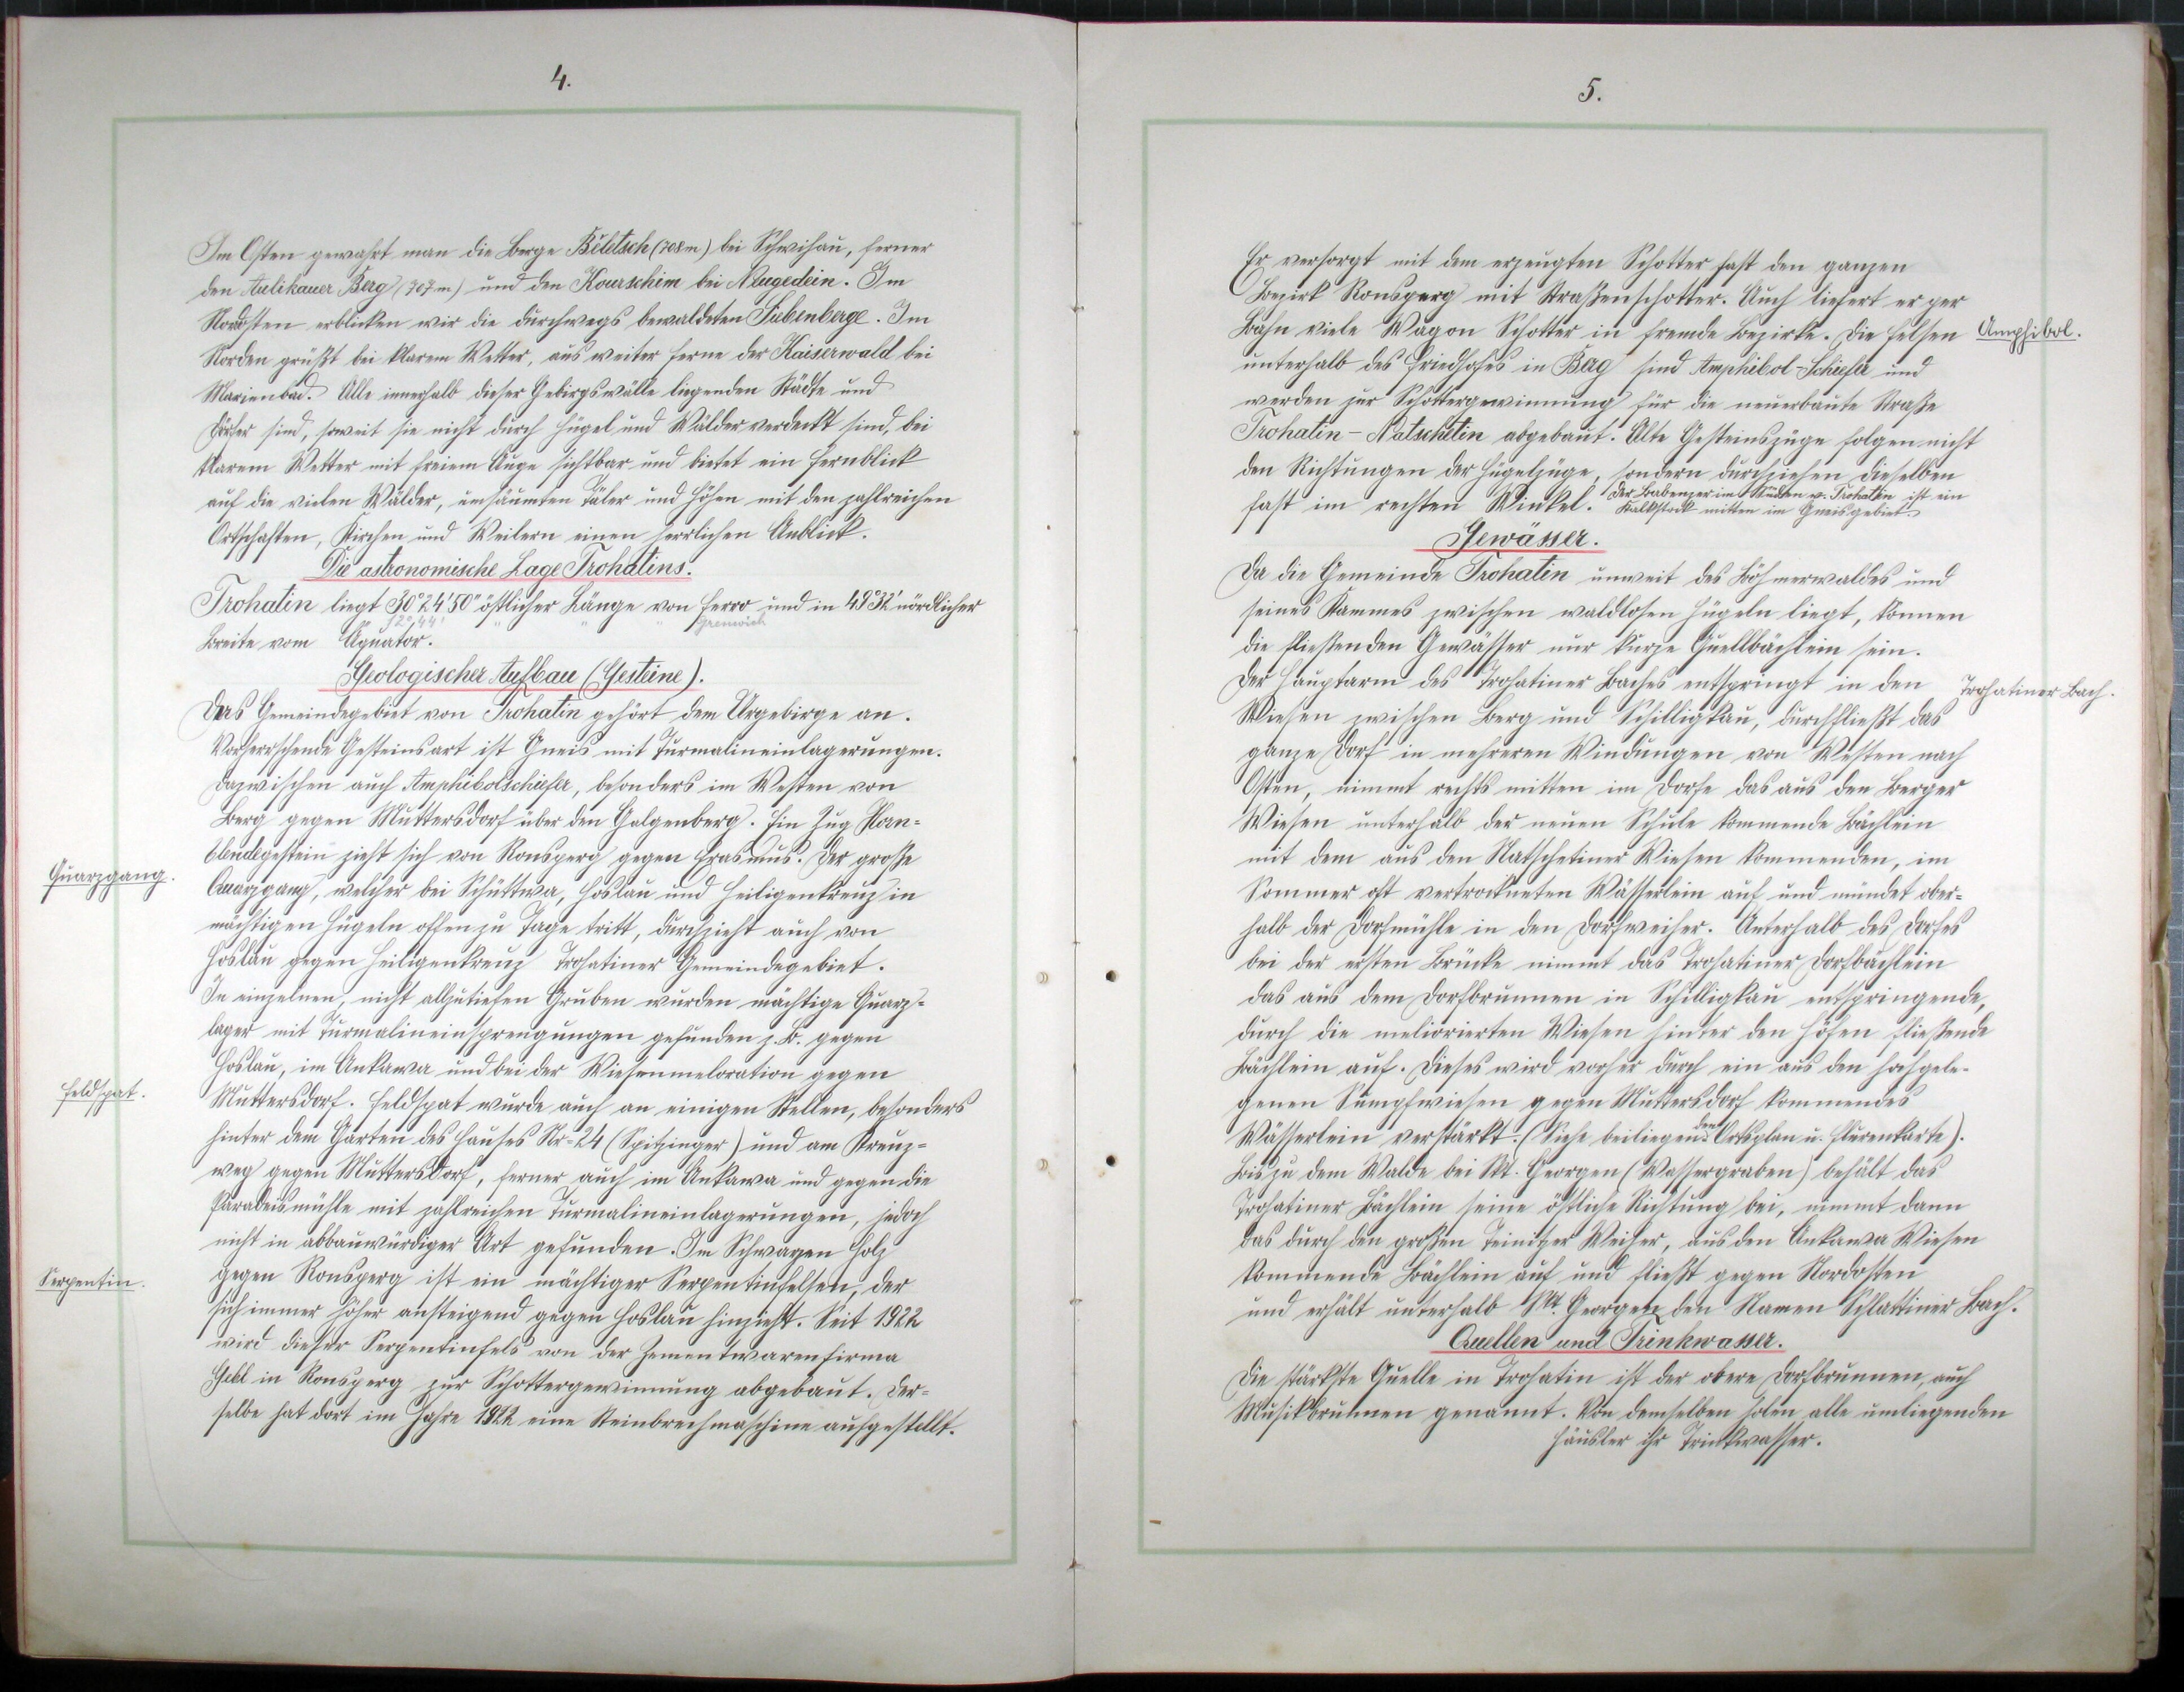 4.
Im Osten gewahrt man die Berge Běletsch (708m) bei Schwihau, ferner
den Aulikauer Berg (707m) und den Kourschim bei Neugedein. Im
Nordosten erblicken wir die durchwegs bewaldeten Siebenberge. Im
Norden grüßt bei klarem Wetter, aus weiter Ferne der Kaiserwald bei
Marienbad. Alle innerhalb dieser Gebirgswälle liegenden Städte und
Dörfer sind, soweit sie nicht durch Hügel und Wälder verdeckt sind, bei
klarem Wetter mit freiem Auge sichtbar und bietet ein Fernblick
auf die vielen Wälder, umsäumten Täler und Höhen mit den zahlreichen
Ortschaften, Kirchen und Weilern einen herrlichen Anblick.
Die astronomische Lage Trohatins.
Trohatin liegt 30°24'50" östlicher Länge von Ferro und in 49°32' nördlicher
12°44' " " " Grenwich
Breite vom Äquator.
Geologischer Aufbau (Gesteine).
Das Gemeindegebiet von Trohatin gehört dem Urgebirge an.
Vorherrschende Gesteinsart ist Gneis mit Turmalineinlagerungen.
Dazwischen auch Amphibolschiefer, besonders im Westen von
Berg gegen Muttersdorf über den Galgenberg. Ein Zug Horn-
blendegestein zieht sich von Ronsperg gegen Erasmus. Der große
Quarzgang.
Quarzgang, welcher bei Schüttwa, Hoslau und Heiligenkreuz in
mächtigen Hügeln offen zu Tage tritt, durchzieht auch von
Hoslau gegen Heiligenkreuz Trohatiner Gemeindegebiet.
In einzelnen, nicht allzutiefen Gruben wurden mächtige Quarz-
lager mit Turmalineinsprengungen gefunden z. B. gegen
Hoslau, im Ankawa und bei der Wiesenmeloration gegen
Feldspat.
Muttersdorf. Feldspat wurde auch an einigen Stellen, besonders
hinter dem Garten des Hauses Nr-24 (Spitzinger) und am Kreuz-
weg gegen Muttersdorf, ferner auch im Ankawa und gegen die
Paradeismühle mit zahlreichen Turmalineinlagerungen, jedoch
nicht in abbauwürdiger Art gefunden. Im Schwagen Holz
Serpentin.
gegen Ronsperg ist ein mächtiger Serpentinfelsen, der
sich immer höher ansteigend gegen Hoslau hinzieht. Seit 1922
wird dieser Serpentinfels von der Zementwarenfirma
Gebl in Ronsperg zur Schottergewinnung abgebaut. Der-
selbe hat dort im Jahre 1922 eine Steinbrechmaschine aufgestellt.
5.
Er versorgt mit dem erzeugten Schotter fast den ganzen
Bezirk Ronsperg mit Straßenschotter. Auch liefert er per
Bahn viele Wagon Schotter in fremde Bezirke. Die Felsen
Amphibol.
unterhalb des Friedhofes in Berg sind Amphibol-Schiefer und
werden zur Schottergewinnung für die neuerbaute Straße
Trohatin - Natschetin abgebaut. Alte Gesteinszüge folgen nicht
den Richtungen der Hügelzüge, sondern durchziehen dieselben
fast im rechten Winkel. Der Babenzer im Süden v. Trohatin ist ein
Kalkstock mitten im Gneisgebiet.
Gewässer.
Da die Gemeinde Trohatin unweit des Böhmerwaldes und
seines Kammes zwischen waldlosen Hügeln liegt, können
die fließenden Gewässer nur kurze Quellbächlein sein.
Der Hauptarm des Trohatiner Baches entspringt in den
Trohatiner Bach.
Wiesen zwischen Berg und Schilligkau, durchfließt das
ganze Dorf in mehreren Windungen von Westen nach
Osten, nimmt rechts mitten im Dorfe das aus den Berger
Wiesen unterhalb der neuen Schule kommende Bächlein
mit dem aus den Natschetiner Wiesen kommenden, im
Sommer oft vertrockneten Wässerlein auf und mündet ober-
halb der Dorfmühle in den Dorfweiher. Unterhalb des Dorfes
bei der ersten Brücke nimmt das Trohatiner Dorfbächlein
das aus dem Dorfbrunnen in Schilligkau entspringende,
durch die meliorierten Wiesen hinter den Höfen fließende
Bächlein auf. Dieses wird vorher durch ein aus den hochgele-
genen Sumpfwiesen gegen Muttersdorf kommendes
Wässerlein verstärkt. (Siehe beiliegenden Ortsplan u. Flurenkarte).
Bis zu dem Walde bei St. Georgen (Wassergraben) behält das
Trohatiner Bächlein seine östliche Richtung bei, nimmt dann
das durch den großen Teinitzer Weiher, aus den Ankawa Wiesen
kommende Bächlein auf und fließt gegen Nordosten
und erhält unterhalb St. Georgen den Namen Schlattiner Bach.
Quellen und Trinkwasser.
Die stärkste Quelle in Trohatin ist der obere Dorfbrunnen, auch
Musikbrunnen genannt. Von demselben holen alle umliegenden
Häusler ihr Trinkwasser.